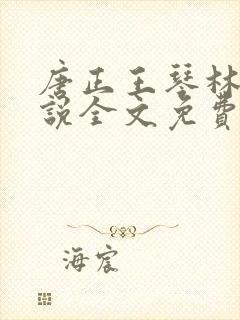 唐正王琴林
説全文免費
海宸